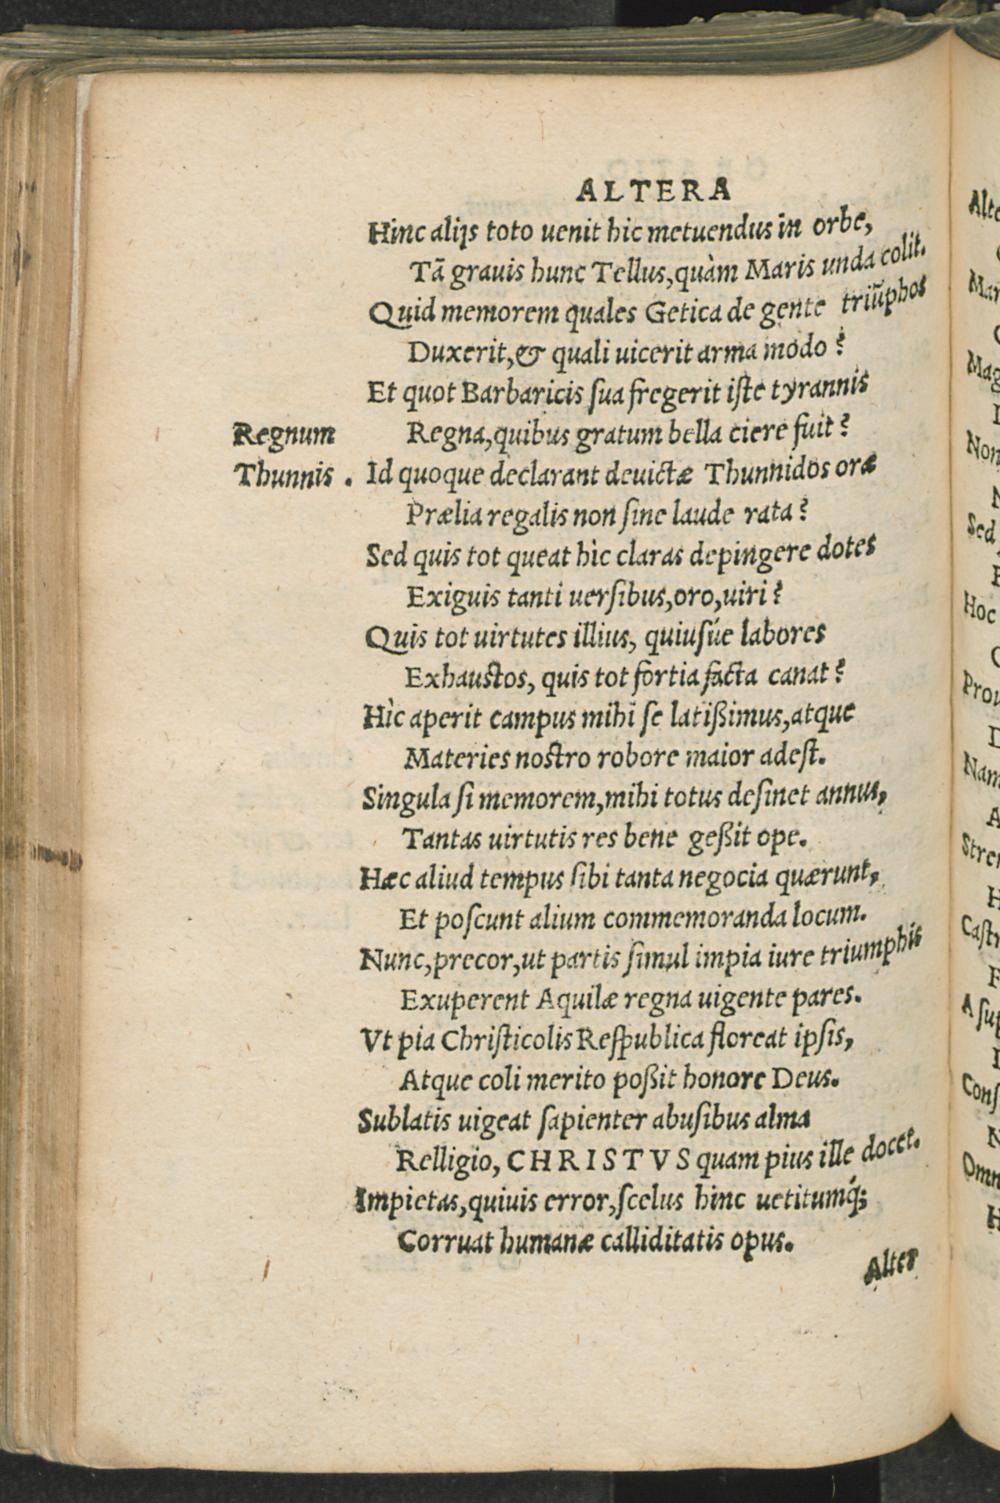 ALTERA
Hinc alijs toto uenit hic metuendus in orbe,
Tā grauis hunc Tellus, quàm Maris unda colit.
Quid memorem quales Getica de gente triūphos
Duxerit, & quali uicerit arma modo?
Et quot Barbaricis sua fregerit iste tyrannis
Regnum Regna, quibus gratum bella ciere fuit?
Thunnis. Id quoque declarant deuictæ Thunnidos oræ
Prælia regalis non sine laude rata?
Sed quis tot queat hìc claras depingere dotes
Exiguis tanti uersibus, oro, uiri?
Quis tot uirtutes illius, quiusúe labores
Exhaustos, quis tot fortia facta canat?
Hìc aperit campus mihi se latißimus, atque
Materies nostro robore maior adest.
Singula si memorem, mihi totus desinet annus,
Tantas uirtutis res bene geßit ope.
Hæc aliud tempus sibi tanta negocia quærunt,
Et poscunt alium commemoranda locum.
Nunc, precor, ut partis simul impia iure triumphis
Exuperent Aquilæ regna uigente pares.
Vt pia Christicolis Respublica floreat ipsis,
Atque coli merito poßit honore Deus.
Sublatis uigeat sapienter abusibus alma
Relligio, CHRISTVS quam pius ille docet.
Impietas, quiuis error, scelus hinc uetitumq́;
Corruat humanæ calliditatis opus.
Alter
Mar
Mag
Non
Sed
Hoc
Prou
Nam
Stren
Castr
A sup
Cons
Omn